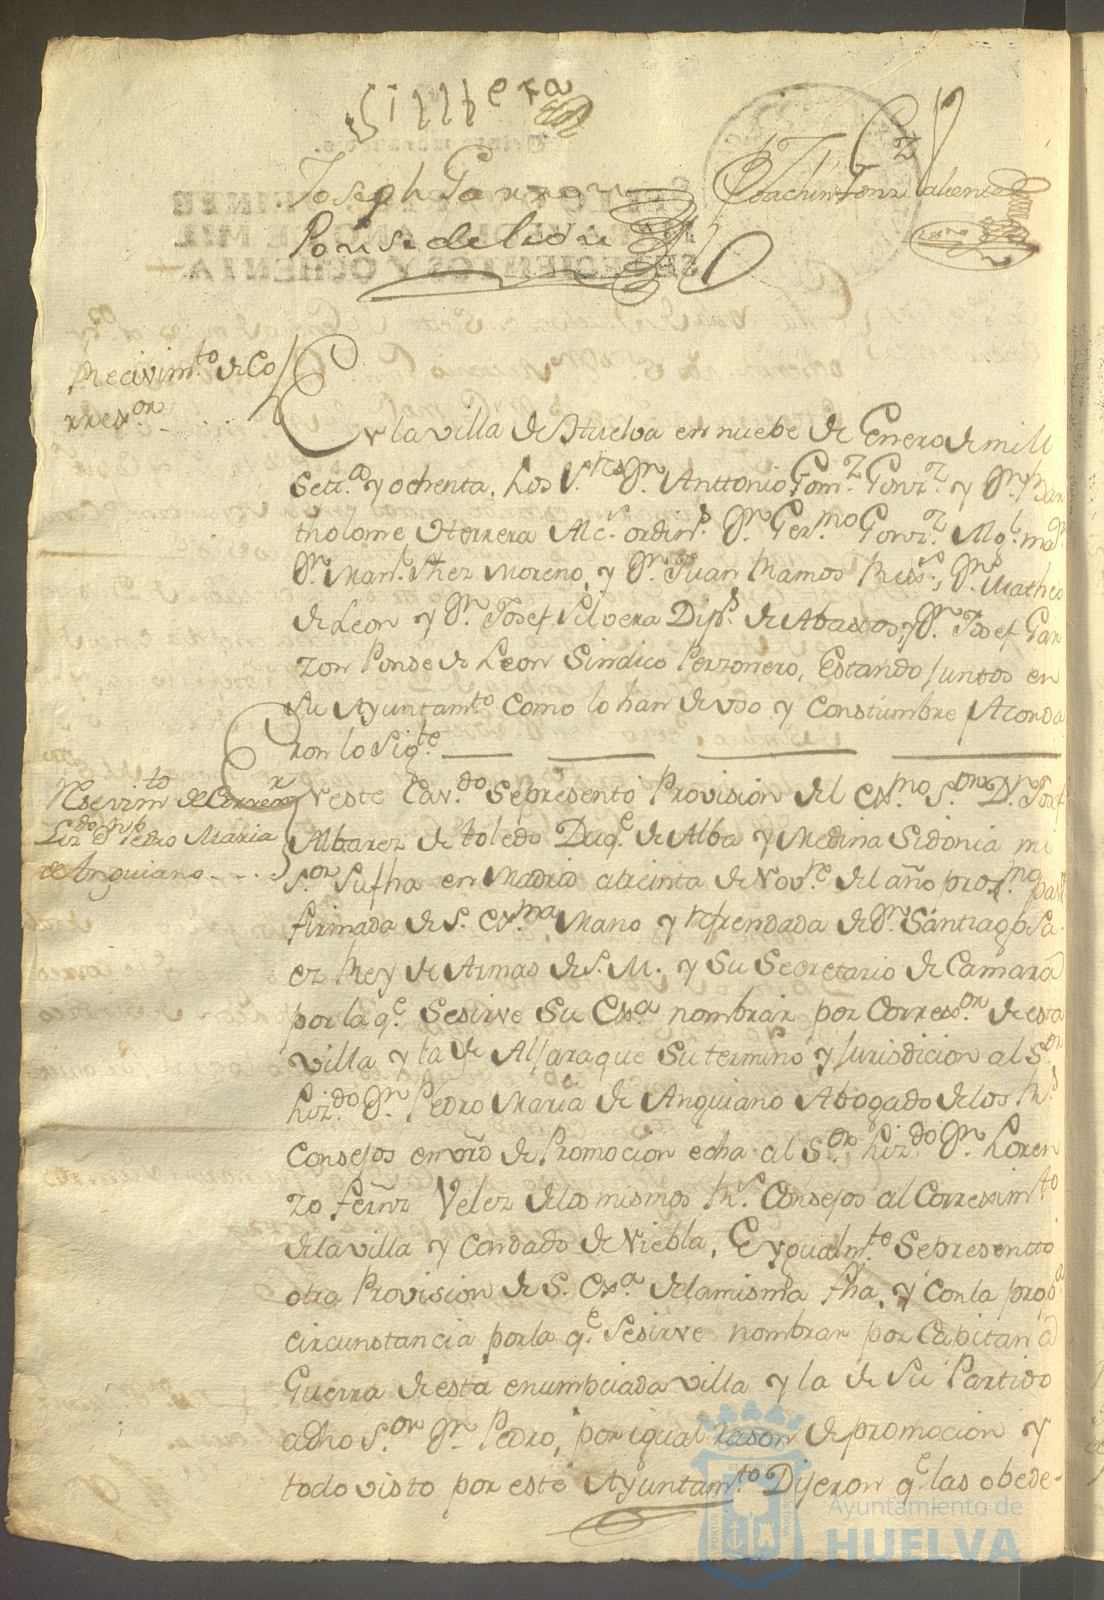 Silbera
Joseph Garzon
Ponse de león
Joachin Gonz Valiente
Recivimto. de Co
rrexor.
En la villa de Huelva en nuebe de Enero de mill
Setta. y ochenta, Los Sres. Dn. Anttonio Gomz. Gonzz. y Dn. Bar
tholome Herrera Alcs. ordins. Dn. Germo. Gonzz. Algl. mar.
Dn. Manl. Shez Moreno, y Dn. Juan Ramos Rexs., Dn. Matheo
de Leon y Dn. Josef Silvera Dips. de Abastos, y Dn. Josef Gar
zon Ponse de Leon Sindico Perzonero, Estando Juntos en
Su Ayuntamto. Como lo han de vso y Constumbre Acorda
ron lo Sigte.
Resevimto. de Correxr.
Lizdo. Dn. Pedro Maria
de Anguiano
En este Cavdo. Sepresentó Provision del Exmo. Sor. Dn. Josef
Albarez de toledo Duqe. de Alba y Medina Sidonia mi
Sor. Su fha en Madrid atreinta de Nove. del año proxmo. pasdo.
firmada de S. Exma. Mano y refrendada de Dn. Santiago Sa
ez Rey de Armas de S. M. y Su Secretario de Camara
por la qe. Sesirve Su Exa. nombrar por Correxor. de esta
villa y la de Aljaraque Su termino y Jurisdicion al Sor.
Lizdo. Dn. Pedro Maria de Anguiano Abogado de los Rs.
Consejos en vro de Promocion echa al Sor. Lizdo. Dn. Loren
zo ferñz Velez de los mismos Rs. Consejos al Correximto.
de la villa y Condado de Niebla, E ygualmte. Sepresentto
otra Provision de S. Exa. de la misma fha, y Con la propa.
circunstancia por la qe. Sesirve nombrar por Capitan a
Guerra de esta enumbciada villa y la de Su Partido
adho Sor. Dn. Pedro, por igual rason de promocion y
todo visto por este Ayuntamto. Dijeron qe. las obede-
Ayuntamiento de
HUELVA